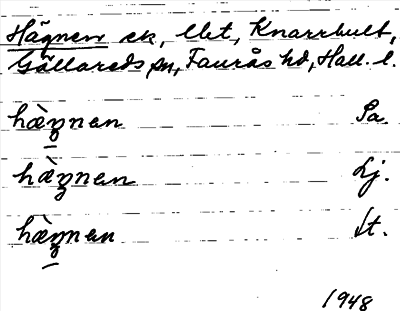 Hägnen ek, Ubt, Knarrhult,
Gällareds sn, Faurås hd, Hall. l.
hæ̀ŋnen Sa.
hæ̀ŋnen Lj.
hæ̀ŋnen St.
1948